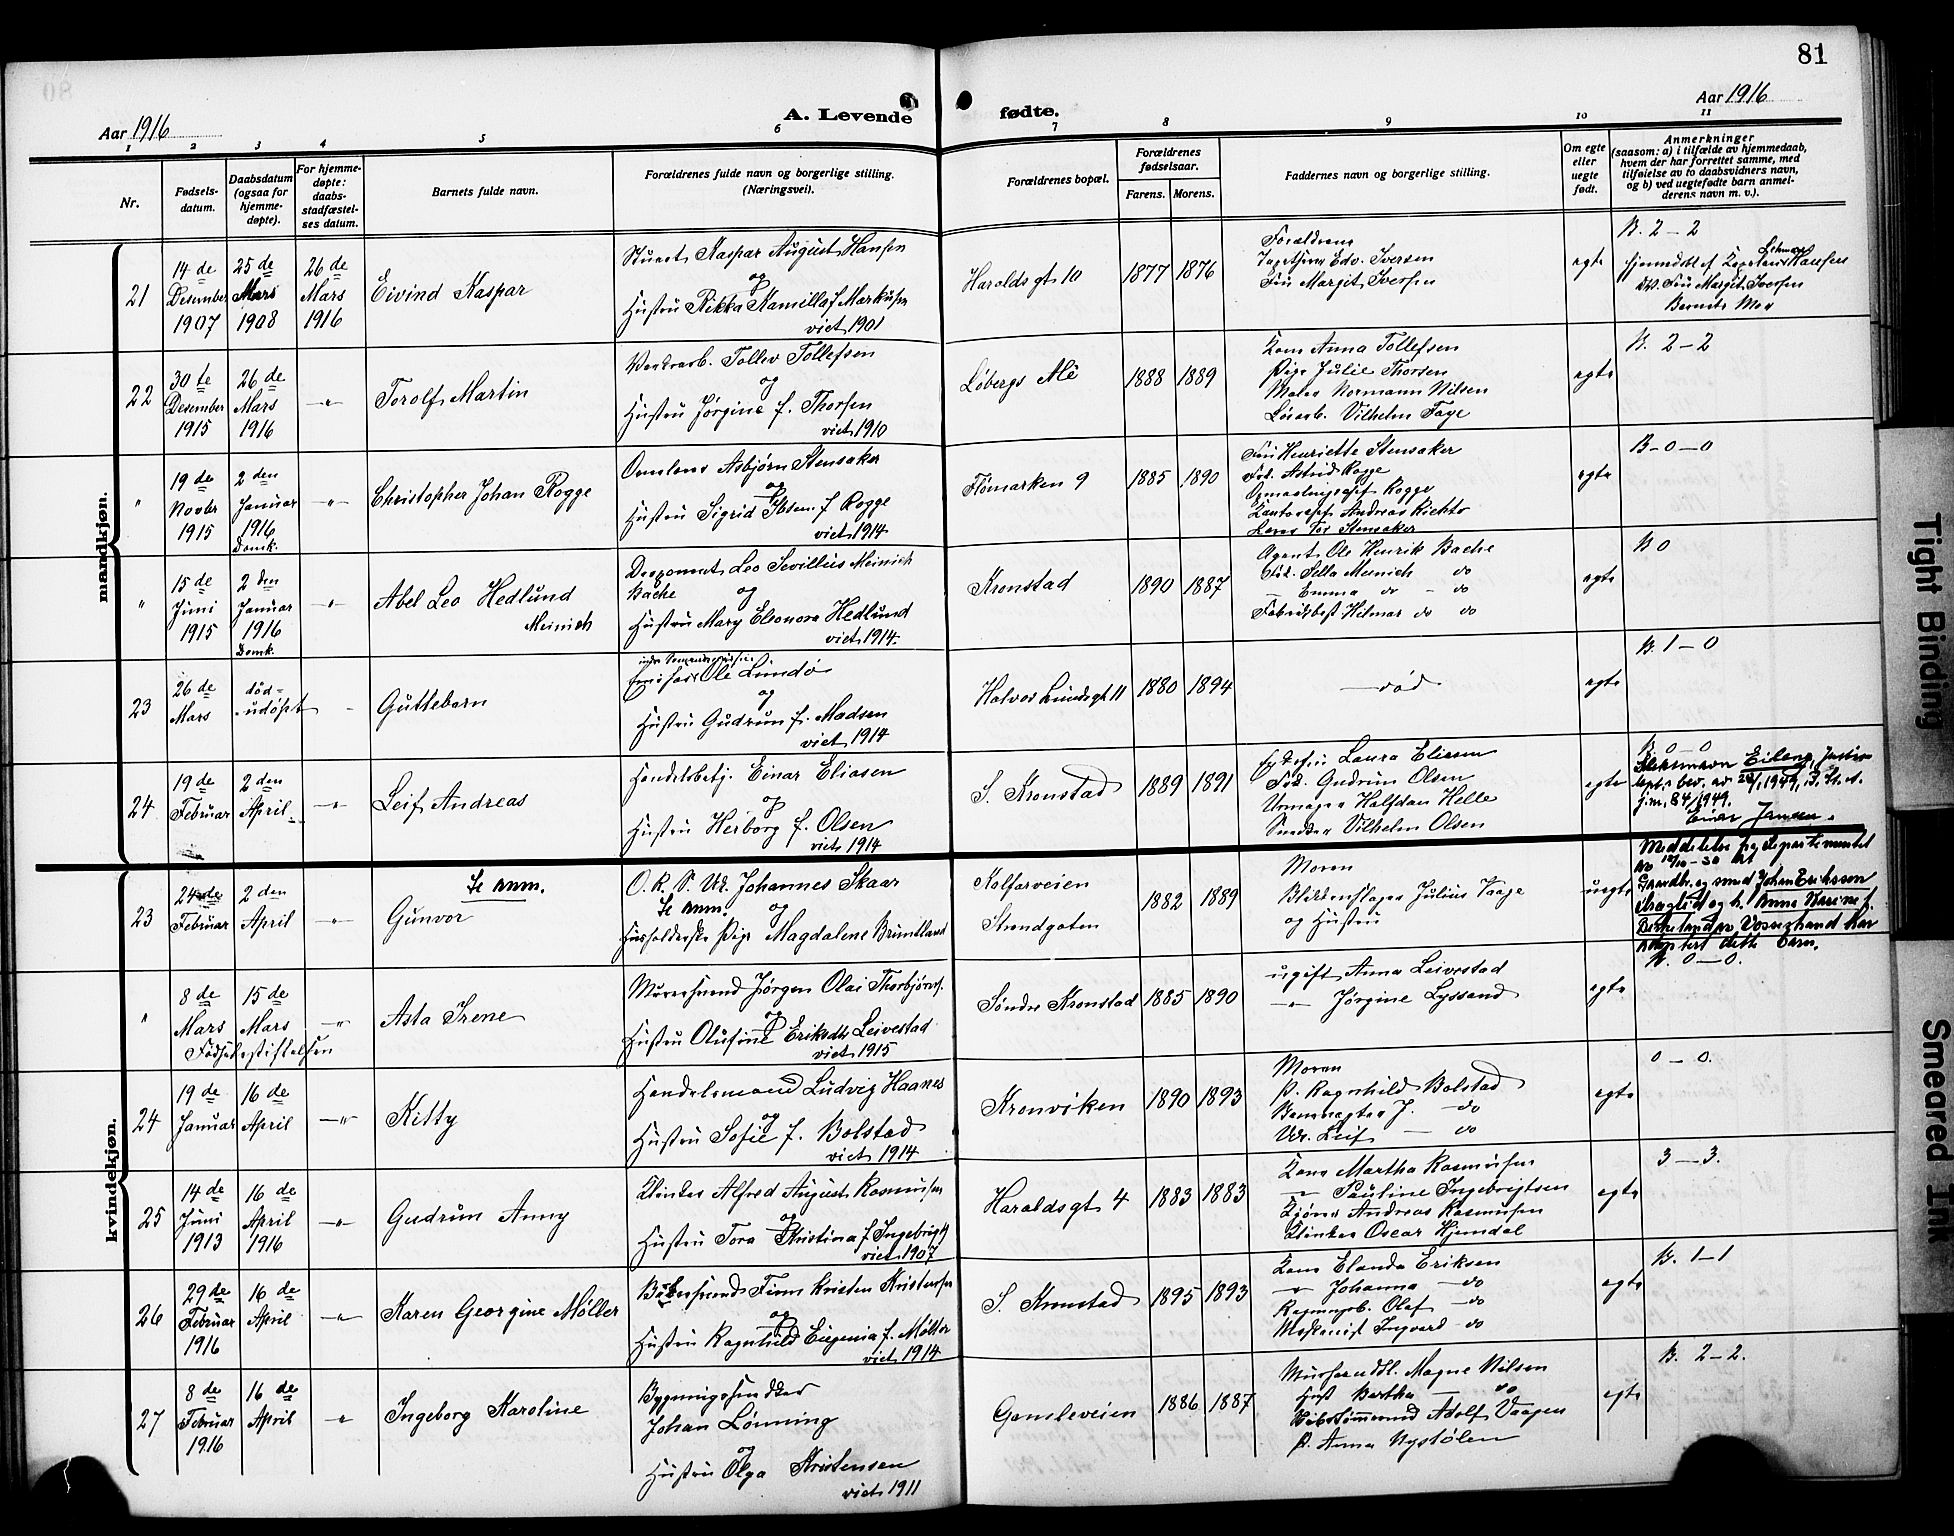 81
Aar 1916
A. Levende
fødte.
Aar 1916
1 2 3 4 5 6 7 8 9 10 11
Nr.
Fødsels-
datum.
Daabsdatum
(ogsaa for
hjemme-
døpte).
For hjemme-
døpte:
daabs-
stadfæstel-
ses datum.
Barnets fulde navn.
Forældrenes fulde navn og borgerlige stilling.
(Næringsvei).
Forældrenes bopæl.
Forældrenes
fødselsaar.
Farens. Morens.
Faddernes navn og borgerlige stilling.
Om egte
eller
uegte
født.
Anmerkninger
(saasom: a) i tilfælde av hjemmedaab,
hvem der har forrettet samme, med
tilføielse av to daabsvidners navn,
og b) ved uegtefødte barn anmel-
derens navn m. v.).
mandkjøn.
21
14 de
Desember
1907
25 de
Mars
1908
26 de
Mars
1916
Eivind Kaspar
Stuert Kaspar August Hansen
og
Hustru Rikka Kamilla f. Markusen
viet 1901
Haroldsgt 10
1877 1876
Forældrene
Edv. Iversen
Fru Margit Iversen
egte
B. 2 - 2
Hansen
Fru Margit Iversen
Barnets Mor
22
30 te
Desember
1915
26 de
Mars
1916
-"-
Torolf Martin
Verksarb. Tollev Tollefsen
og
Hustru Jørgine f. Thorsen
viet 1910
Løbergs Alé
1888 1889
Kone Anna Tollefsen
Pige Julie Thorsen
Maler Normann Nilsen
Løsarb. Vilhelm Faye
egte
B. 2 - 2
"
19 de
Novbr
1915
2 den
Januar
1916
Domk.
-"-
Christopher Johan Rogge
Asbjørn Stensaker
og
Hustru Sigrid Ibsen f. Rogge
viet 1914
Flømarken 9
1885 1890
Fru Henriette Stensaker
Frk. Astrid Rogge
Rogge
Kontorchef Andreas
Tor Stensaker
egte
B - 0 - 0
"
15 de
Juni
1915
2 den
Januar
1916
Domk.
-"-
Abel Leo Hedlund
Meinich
Leo Sevillius Meinich
Bache og
Hustru Mary Eleonora Hedlund
viet 1914.
Kronstad
1890 1887
Agent Ole Henrik Bache
Frk. Sella Meinich do
- Emma do - do
Fabrikbest Hilmar do do
egte
B 0
23
26 de
Mars
død-
udøpt
-
Guttebarn
Ole Lundø
og
Hustru Gudrun f. Madsen
viet 1914
Halvor Lundsgt 11
1880 1894
- død
egte
B. 1 - 0
24
19 de
Februar
2 den
April
-"-
Leif Andreas
Handelsbetj. Einar Eliasen
og
Hustru Herborg f. Olsen
viet 1914
S. Kronstad
1889 1891
Laura Eliasen
Frk. Gudrun Olsen
Urmager Halfdan Helle
Snekker Vilhelm Olsen
egte
B. 0 - 0
Slektsnavn
bev. av
j.nr. 84/1949.
kvindekjøn.
23
24 de
Februar
2 den
April
-"-
Se anm.
Gunvor
Johannes Skaar
Se anm. og
Pige Magdalene Brundtland
Kalfarveien
Strandgaten
1882 1889
Moren
Blikkenslager Julius Vaage
og Hustru
uegte
Meddelelse fra departementet
Johan Eriksson
og h. Anna Karine f.
har
adoptert dette barn.
"
8 de
Mars
15 de
Mars
-"-
Fødselsstiftelsen
Asta Irene
Murersvend Jørgen Olai Thorbjørns.
og
Hustru Olufine Eriksdtr Leivestad
viet 1915
Søndre Kronstad
1885 1890
ugift Anna Leivestad
-"- Jørgine Lyssand
egte
B. 0 - 0.
24
19 de
Januar
16 de
April
-"-
Kitty
Handelsmand Ludvig Haanes
og
Hustru Sofie f. Bolstad
viet 1914
Kronviken
1890 1893
Moren
P. Ragnhild Bolstad
J. - do
Leif - do
egte
0 - 0.
25
14 de
Juni
1913
16 de
April
1916
-"-
Gudrun Anny
Klinker Alfred August Rasmusen
og
Hustru Tora Kristina f. Ingebrigt
viet 1907
Haroldsgt 4
1883 1883
Kone Martha Rasmusen
-"- Pauline Ingebrigtsen
Andreas Rasmusen
Klinker Oscar Hjemdal
egte
3 - 3.
26
29 de
Februar
1916
16 de
April
-"-
Karen Georgine Møller
Finn Kristen Kristensen
og
Hustru Ragnhild Eugenia f. Møller
viet 1914
S. Kronstad
1895 1893
Kone Elanda Eriksen
-"- Johanna - do
Olaf - do
Maskinist Ingvard do
egte
B. 1 - 1
27
8 de
Februar
1916
16 de
April
-"-
Ingeborg Karoline
Bygningssnedker
Johan Lønning
og
Hustru Olga Kristensen
viet 1911
Gamleveien
1886 1887
Magne Nilsen
Hust Bertha - do
Adolf Vaagen
P. Anna Nystølen
egte
B. 2 - 2.
Tight Binding
Smeared Ink